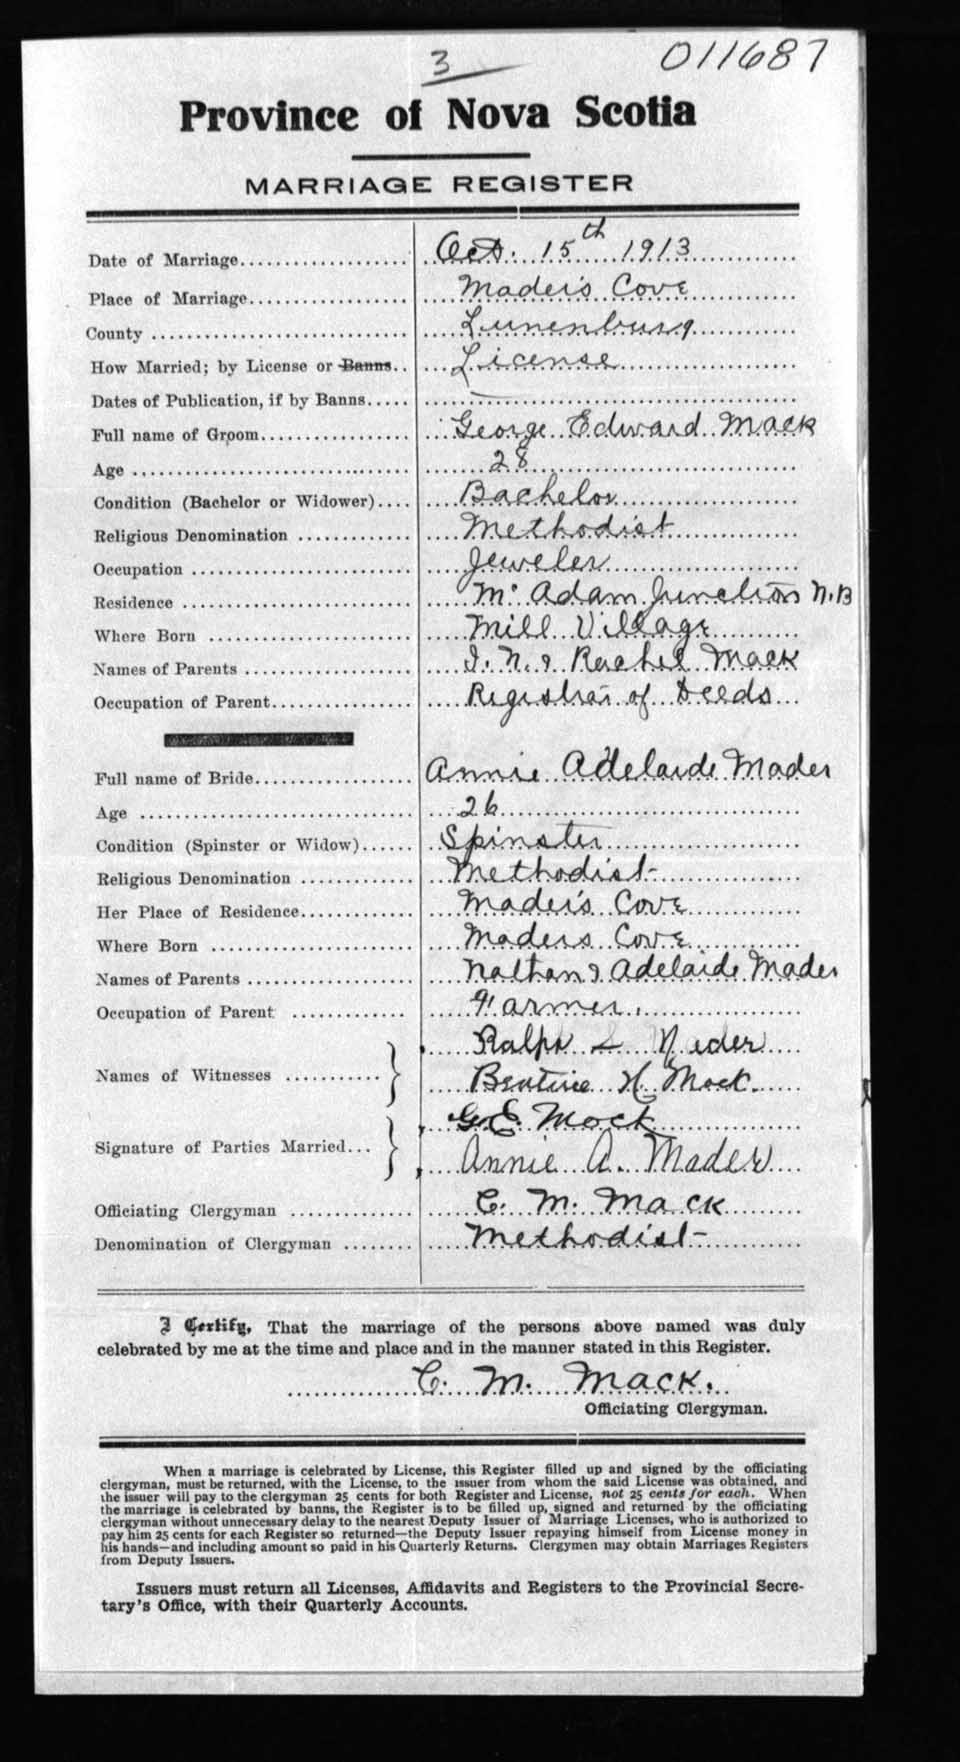 3
011687
Province of Nova Scotia
MARRIAGE REGISTER
Date of Marriage Oct. 15th 1913
Place of Marriage Mader's Cove
County Lunenburg
How Married; by License or Banns License
Dates of Publication, if by Banns —
Full name of Groom George Edward Mack
Age 28
Condition (Bachelor or Widower) Bachelor
Religious Denomination Methodist
Occupation Jeweler
Residence Mc Adam Junction N.B
Where Born Mill Village
Names of Parents I. N. & Rachel Mack
Occupation of Parent Registrar of Deeds
Full name of Bride Annie Adelaide Mader
Age 26
Condition (Spinster or Widow) Spinster
Religious Denomination Methodist
Her Place of Residence Mader's Cove
Where Born Maders Cove
Names of Parents Nathan & Adelaide Mader
Occupation of Parent Farmer.
Names of Witnesses Ralph S Mader
Beatrice H. Mack.
Signature of Parties Married G. E. Mack
Annie A. Mader
Officiating Clergyman C. M. Mack
Denomination of Clergyman Methodist
I Certify, That the marriage of the persons above named was duly
celebrated by me at the time and place and in the manner stated in this Register.
C. M. Mack.
Officiating Clergyman.
When a marriage is celebrated by License, this Register filled up and signed by the officiating
clergyman, must be returned, with the License, to the issuer from whom the said License was obtained, and
the issuer will pay to the clergyman 25 cents for both Register and License, not 25 cents for each. When
the marriage is celebrated by banns, the Register is to be filled up, signed and returned by the officiating
clergyman without unnecessary delay to the nearest Deputy Issuer of Marriage Licenses, who is authorized to
pay him 25 cents for each Register so returned—the Deputy Issuer repaying himself from License money in
his hands—and including amount so paid in his Quarterly Returns. Clergymen may obtain Marriages Registers
from Deputy Issuers.
Issuers must return all Licenses, Affidavits and Registers to the Provincial Secre-
tary's Office, with their Quarterly Accounts.